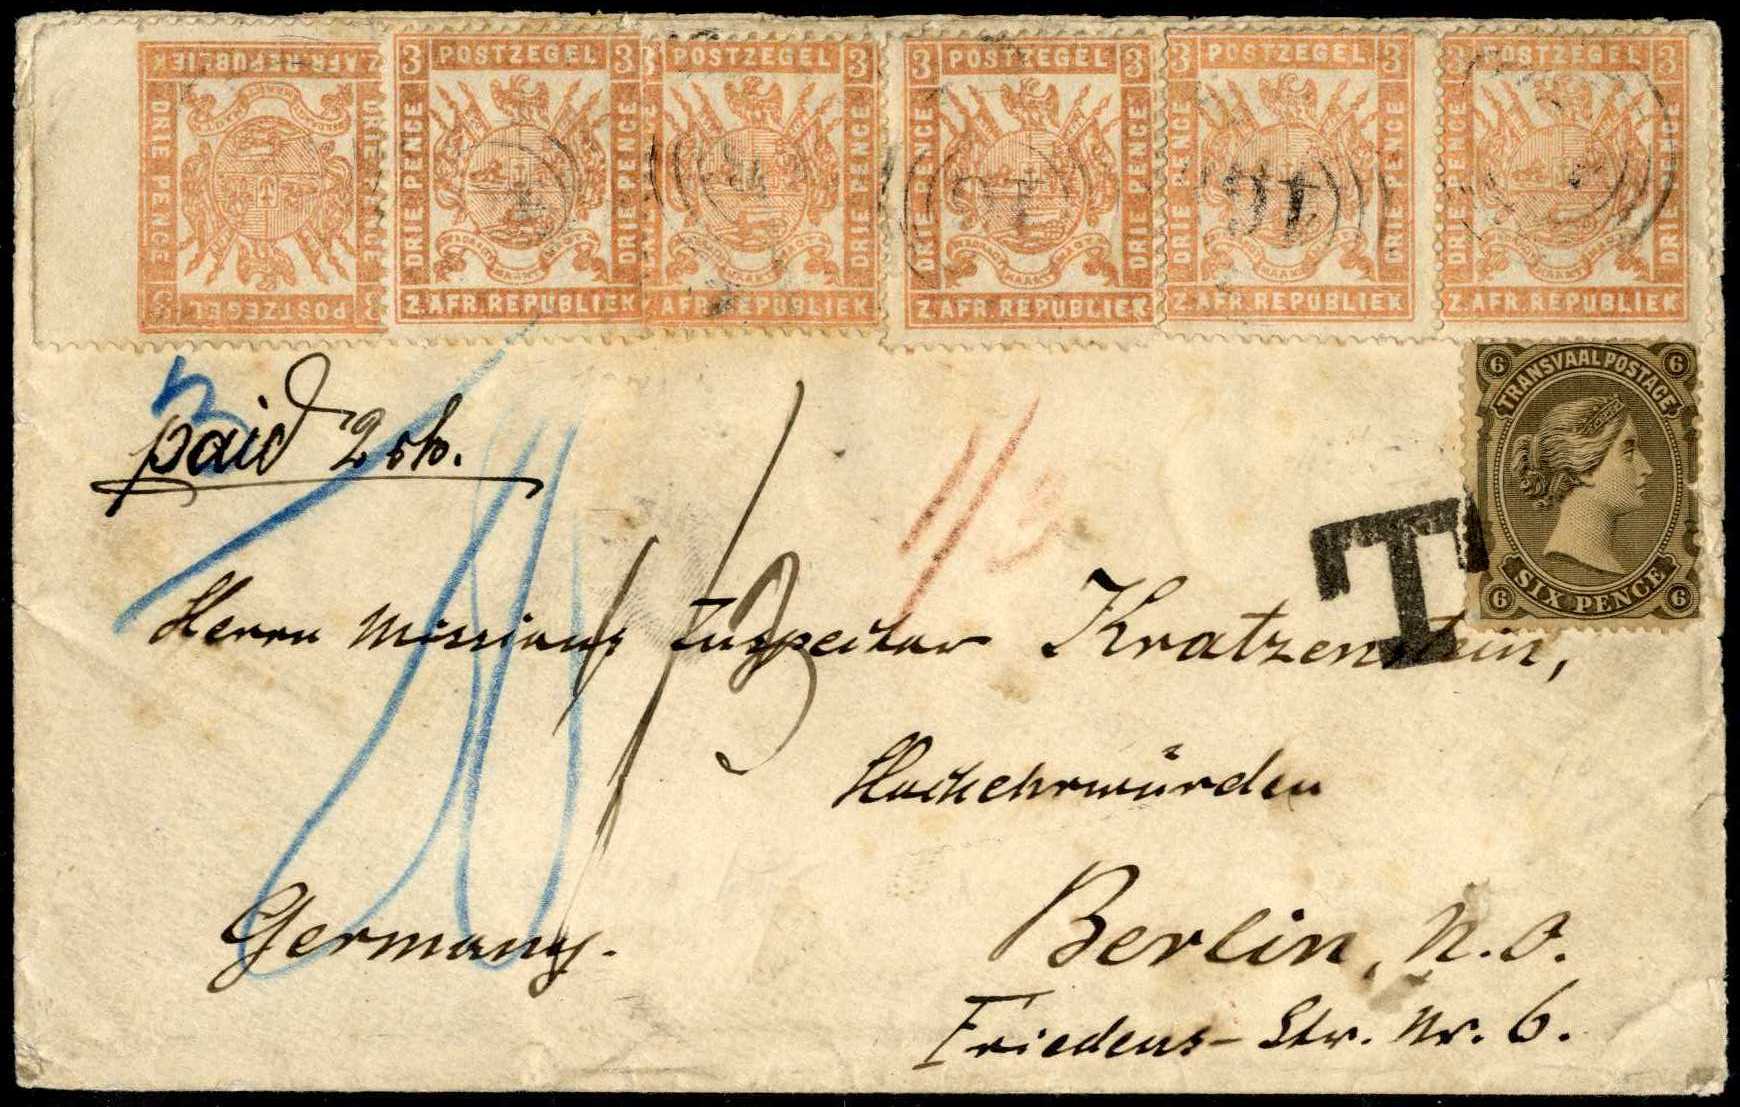 Z.AFR.REPUBLIEK DRIE PENCE DRIE PENCE POSTZEGEL 3 3
3 POSTZEGEL 3 DRIE PENCE DRIE PENCE Z.AFR.REPUBLIEK
3 POSTZEGEL 3 DRIE PENCE AFR.REPUBLIEK
3 POSTZEGEL 3 DRIE PENCE DRIE PENCE Z.AFR.REPUBLIEK
3 POSTZEGEL 3 DRIE PENCE DRIE PENCE Z.AFR.REPUBLIEK
3 POSTZEGEL 3 DRIE PENCE DRIE PENCE Z.AFR.REPUBLIEK
6 TRANSVAAL POSTAGE 6
6 SIX PENCE 6
paid 2 sh.
1/3
1/3
T
Herrn Missions Inspector Kratzenstein,
Hochehrwürden
Germany.
Berlin, N.O.
Friedens-Str. Nr. 6.